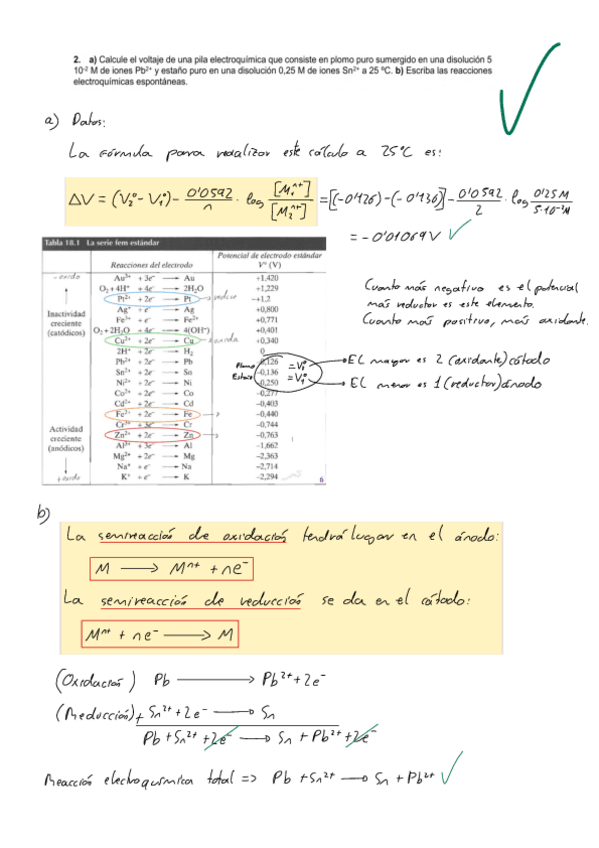 2. a) Calcule el voltaje de una pila electroquímica que consiste en plomo puro sumergido en una disolución 5
10⁻² M de iones Pb²⁺ y estaño puro en una disolución 0,25 M de iones Sn²⁺ a 25 ºC. b) Escriba las reacciones
electroquímicas espontáneas.
a) Datos:
La fórmula para realizar este cálculo a 25ºC es:
ΔV = (V₂º - V₁º) - 0'0592/n · log [M₁ⁿ⁺]/[M₂ⁿ⁺] = [(-0'126)-(-0'136)] - 0'0592/2 · log 0'25M/5·10⁻²M
= -0'01069V
Tabla 18.1 La serie fem estándar
Reacciones del electrodo
Potencial de electrodo estándar
V° (V)
Au³⁺ + 3e⁻ → Au +1,420
O₂ + 4H⁺ + 4e⁻ → 2H₂O +1,229
Pt²⁺ + 2e⁻ → Pt ~+1,2
Ag⁺ + e⁻ → Ag +0,800
Fe³⁺ + e⁻ → Fe²⁺ +0,771
O₂ + 2H₂O + 4e⁻ → 4(OH⁻) +0,401
Cu²⁺ + 2e⁻ → Cu +0,340
2H⁺ + 2e⁻ → H₂ 0
Pb²⁺ + 2e⁻ → Pb
Sn²⁺ + 2e⁻ → Sn -0,136
Ni²⁺ + 2e⁻ → Ni -0,250
Co²⁺ + 2e⁻ → Co -0,277
Cd²⁺ + 2e⁻ → Cd -0,403
Fe²⁺ + 2e⁻ → Fe -0,440
Cr³⁺ + 3e⁻ → Cr -0,744
Zn²⁺ + 2e⁻ → Zn -0,763
Al³⁺ + 3e⁻ → Al -1,662
Mg²⁺ + 2e⁻ → Mg -2,363
Na⁺ + e⁻ → Na -2,714
K⁺ + e⁻ → K -2,294
Inactividad
creciente
(catódicos)
Actividad
creciente
(anódicos)
Plomo = V₂º
Estaño = V₁º
6
Cuanto más negativo es el potencial
más reductor es este elemento.
Cuanto más positivo, más oxidante.
EL mayor es 2 (oxidante) cátodo
EL menor es 1 (reductor) ánodo
b)
La semireacción de oxidación tendrá lugar en el ánodo:
M → Mⁿ⁺ + ne⁻
La semireacción de reducción se da en el cátodo:
Mⁿ⁺ + ne⁻ → M
(Oxidación) Pb → Pb²⁺ + 2e⁻
(Reducción) + Sn²⁺ + 2e⁻ → Sn
Pb + Sn²⁺ + 2e⁻ → Sn + Pb²⁺ + 2e⁻
Reacción electroquímica total => Pb + Sn²⁺ → Sn + Pb²⁺